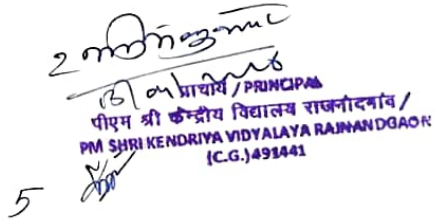 प्राचार्य / PRINCIPAL
पीएम श्री केन्द्रीय विद्यालय राजनांदगांव /
PM SHRI KENDRIYA VIDYALAYA RAJNANDGAON
(C.G.) 491441
5